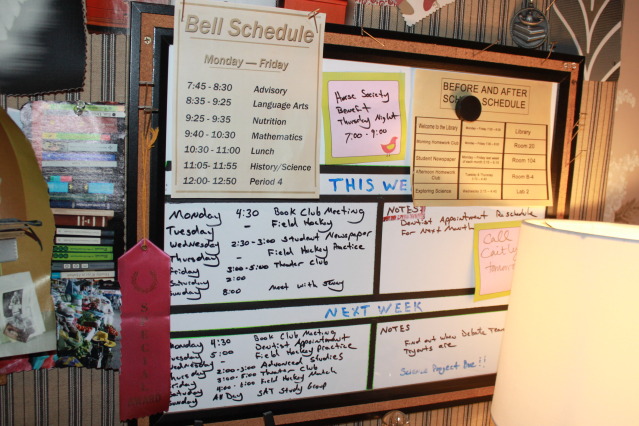 Bell Schedule
Monday — Friday
7:45 - 8:30 Advisory
8:35 - 9:25 Language Arts
9:25 - 9:35 Nutrition
9:40 - 10:30 Mathematics
10:30 - 11:00 Lunch
11:05- 11:55 History/Science
12:00- 12:50 Period 4
Horse Society
Benefit
Thursday Night
7:00 - 9:00
BEFORE AND AFTER
SCHEDULE
Welcome to the Library Library
Morning Homework Club Room 20
Student Newspaper Room 104
Afternoon Homework Club
Exploring Science Lab 2
THIS WE
Monday 4:30 Book Club Meeting
Tuesday - Field Hockey
Wednesday 2:30 - 3:00 Student Newspaper
Thursday - Field Hockey Practice
Friday 3:00 - 5:00 Theater Club
Saturday 2:00
Sunday 8:00 Meet with
NOTES
Dentist Appointment Re schedule
For Next Month
Call
NEXT WEEK
Monday 4:30 Book Club Meeting
Tuesday 5:00 Dentist Appointment
Wednesday Field Hockey Practice
Thursday 2:00 - 3:00 Advanced Studies
Friday 3:00 - 5:00 Theater Club
Saturday 4:00 - 6:00 Field Hockey Match
Sunday All Day SAT Study Group
NOTES
Find out when Debate Team
Tryouts are
Science Project Due!!